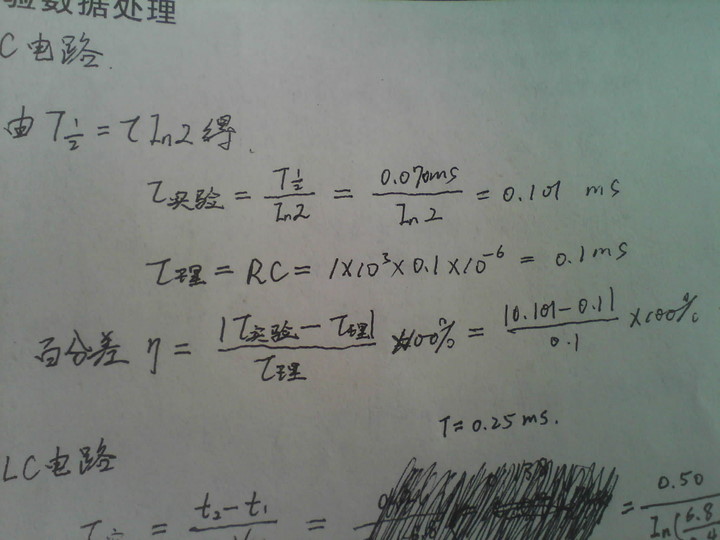 验数据处理
C 电路.
由 T½ = τ In2 得.
τ实验 = T½ / In2 = 0.070ms / In 2 = 0.101 ms
τ理 = RC = 1×10³×0.1×10⁻⁶ = 0.1ms
百分差 η = |τ实验 - τ理| / τ理 ×100% = |0.101-0.1| / 0.1 ×100%
T = 0.25 ms.
LC 电路
= t₂-t₁ / = = = 0.50 / In(6.8